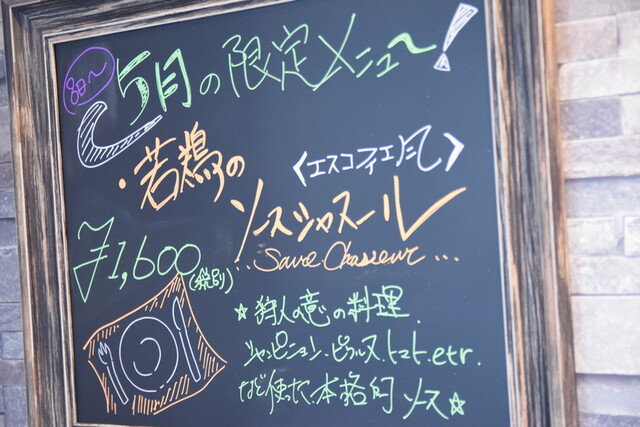 8日〜
5月の限定メニュ〜!
・若鶏の
〈エスコフィエ風〉
ソースシャスール
..Sauce Chasseur...
¥1,600(税別)
☆狩人の意の料理.
シャンピニョン・ピクルス トマト.etr.
など使った、本格的ソース☆